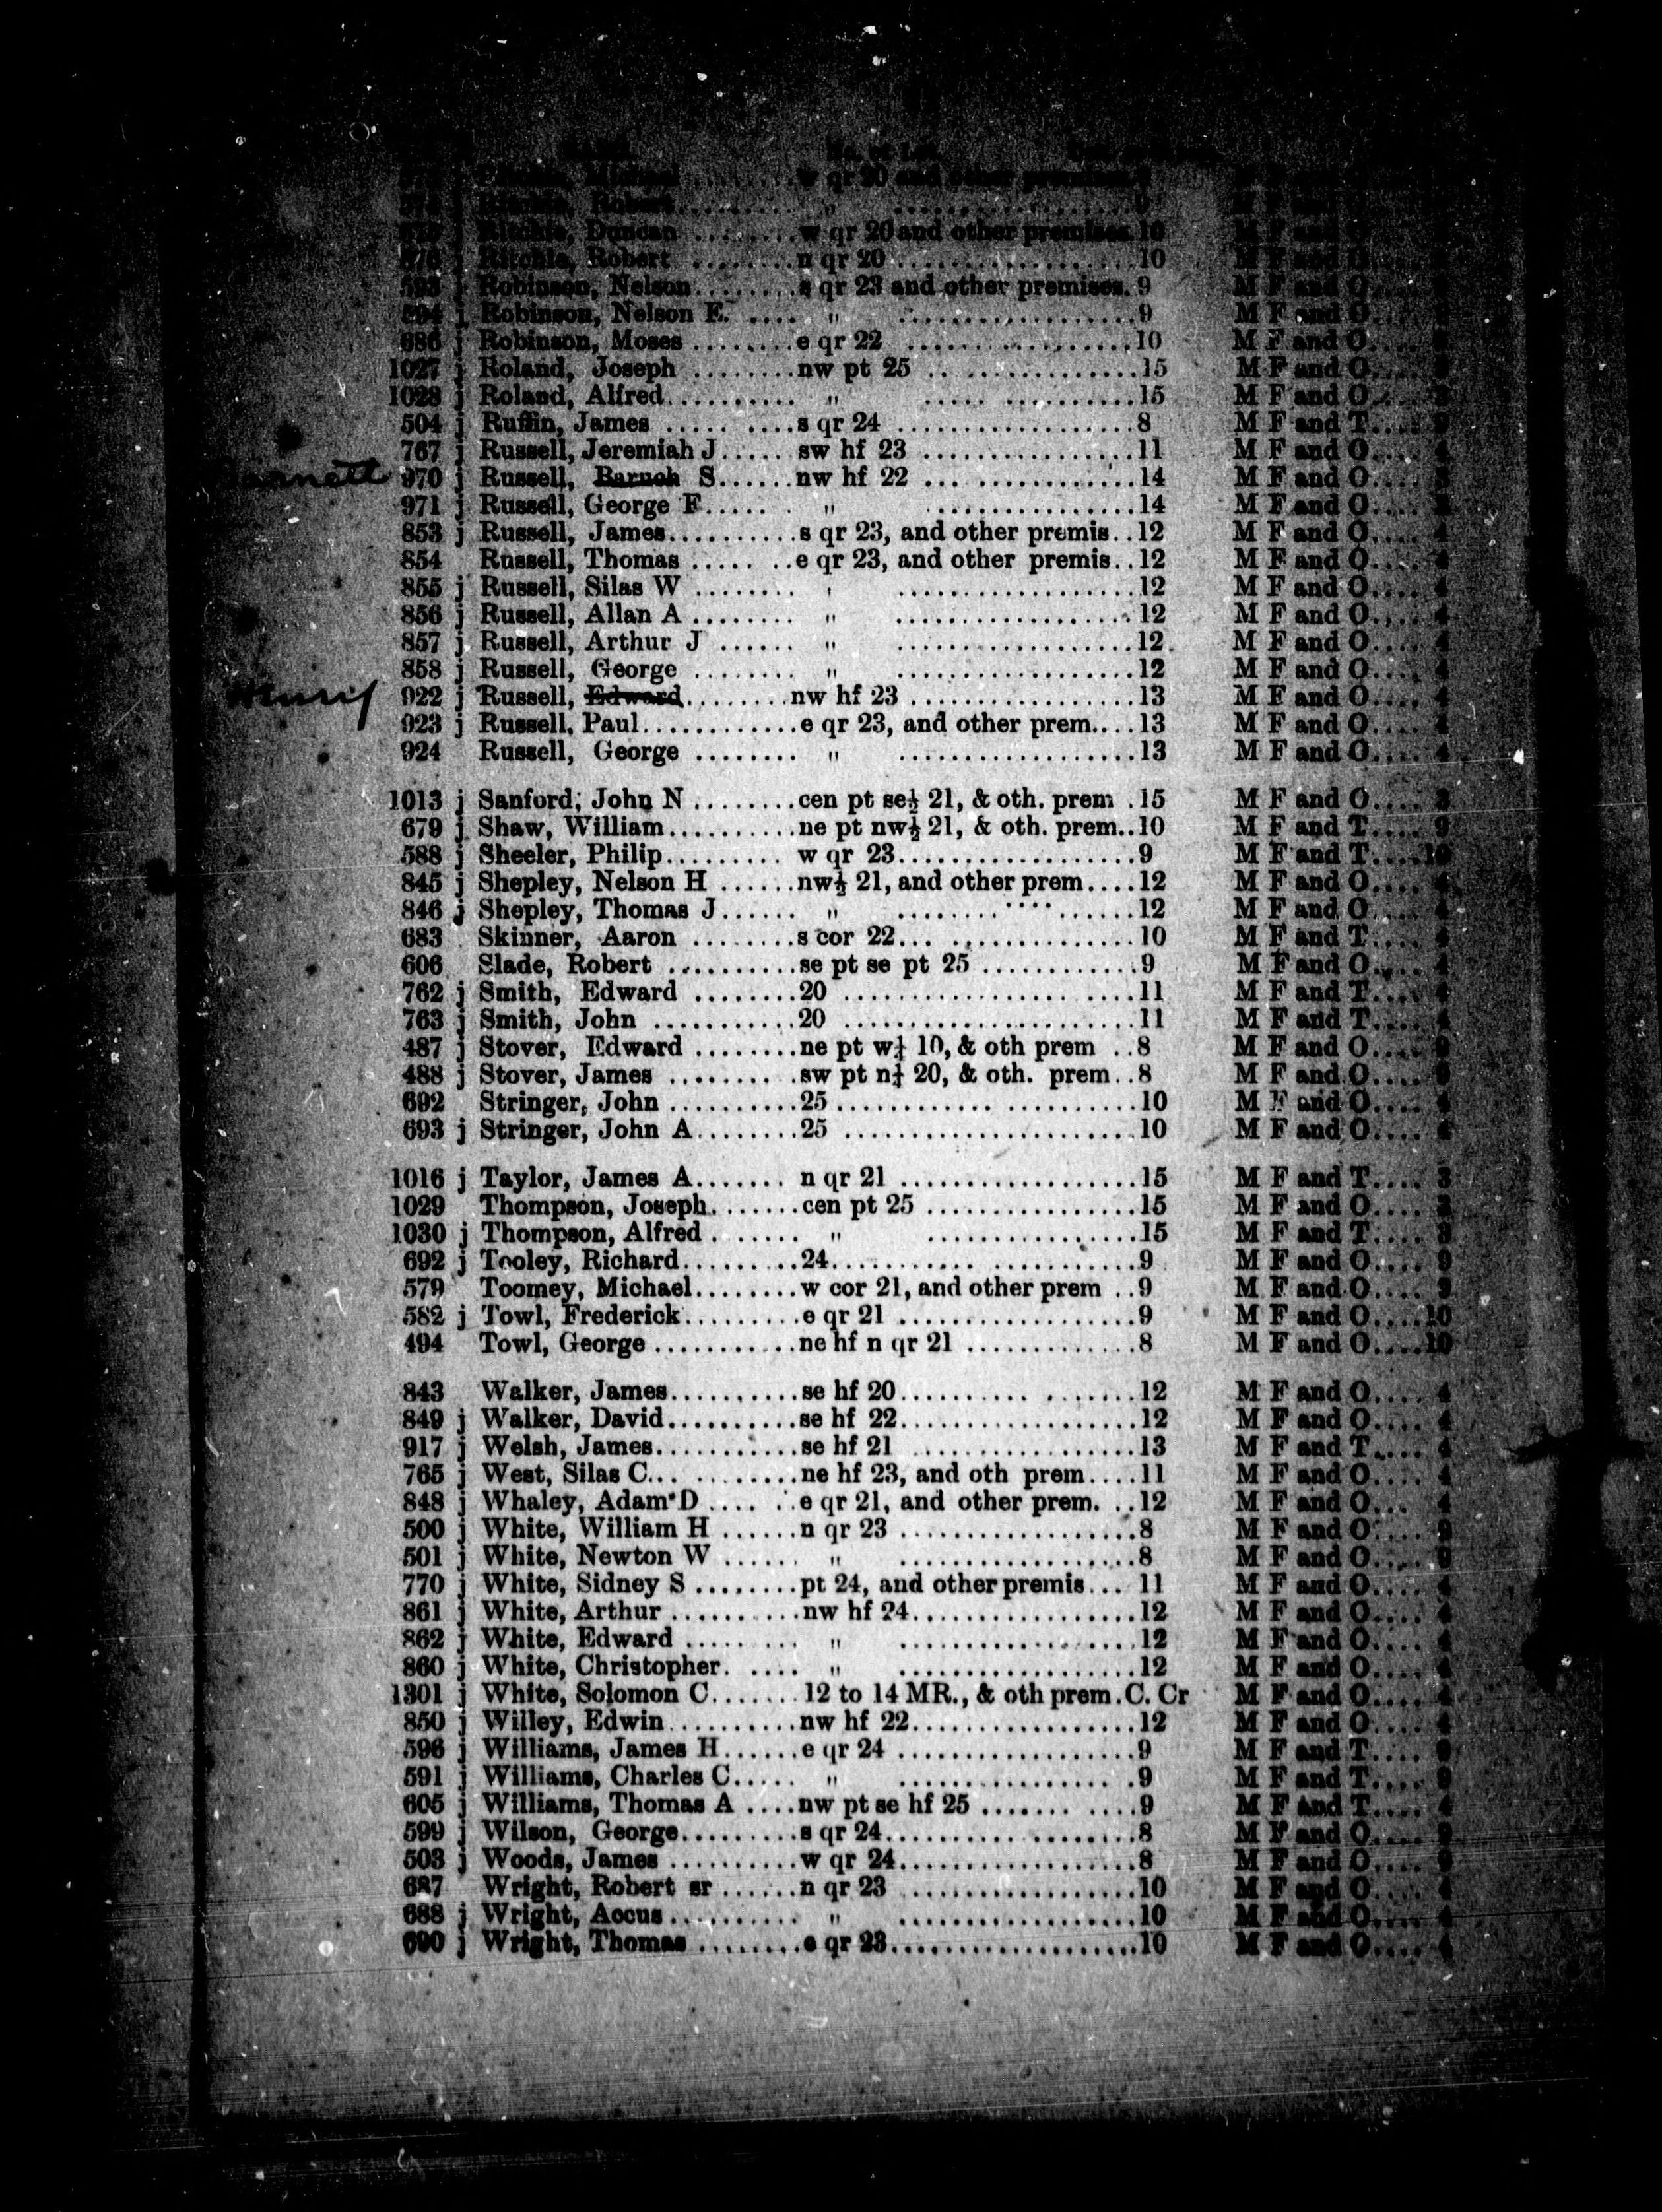 w qr 20 and other premises
Robert
Ritchie, Duncan ........w qr 20 and other premises.10 M F and
Ritchie, Robert ........n qr 20 ..................10 M F and
Robinson, Nelson........s qr 23 and other premises. 9 M F and O....
Robinson, Nelson E. .... " ..................9 M F and O....
686 j Robinson, Moses ........e qr 22 ..................10 M F and O....
1027 j Roland, Joseph ........nw pt 25 ..................15 M F and O....
1028 j Roland, Alfred.......... " ..................15 M F and O....
504 j Ruffin, James ..........s qr 24 ..................8 M F and T.... 9
767 j Russell, Jeremiah J..... sw hf 23 ................11 M F and O.... 4
970 j Russell, Baruch S......nw hf 22 ................14 M F and O....
971 j Russell, George F...... " ................14 M F and O....
853 j Russell, James..........s qr 23, and other premis..12 M F and O.... 4
854 Russell, Thomas ........e qr 23, and other premis..12 M F and O.... 4
855 j Russell, Silas W ........ " ..................12 M F and O.... 4
856 j Russell, Allan A ........ " ..................12 M F and O.... 4
857 j Russell, Arthur J ...... " ..................12 M F and O.... 4
858 j Russell, George ........ " ..................12 M F and O.... 4
Henry 922 j Russell, Edward........nw hf 23 .................13 M F and O.... 4
923 j Russell, Paul............e qr 23, and other prem....13 M F and O.... 4
924 Russell, George ........ " ..................13 M F and O.... 4
1013 j Sanford, John N ........cen pt se½ 21, & oth. prem .15 M F and O.... 3
679 j Shaw, William..........ne pt nw½ 21, & oth. prem..10 M F and T.... 9
588 j Sheeler, Philip......... w qr 23..................9 M F and T....10
845 j Shepley, Nelson H ......nw½ 21, and other prem....12 M F and O.... 4
846 j Shepley, Thomas J...... " ..................12 M F and O.... 4
683 Skinner, Aaron ........s cor 22..................10 M F and T.... 4
606 Slade, Robert ..........se pt se pt 25 ............9 M F and O.... 4
762 j Smith, Edward ........20 ......................11 M F and T.... 4
763 j Smith, John ...........20 ......................11 M F and T.... 4
487 j Stover, Edward ........ne pt w½ 10, & oth prem ..8 M F and O....
488 j Stover, James ..........sw pt n½ 20, & oth. prem..8 M F and O....
692 Stringer, John ..........25 .......................10 M F and O.... 4
693 j Stringer, John A........25 .......................10 M F and O.... 4
1016 j Taylor, James A....... n qr 21 ..................15 M F and T.... 3
1029 Thompson, Joseph.......cen pt 25 ................15 M F and O.... 3
1030 j Thompson, Alfred ....... " ................15 M F and T.... 3
692 j Tooley, Richard.........24.......................9 M F and O.... 9
579 Toomey, Michael........w cor 21, and other prem ..9 M F and O.... 9
582 j Towl, Frederick.........e qr 21 ..................9 M F and O....10
494 Towl, George ...........ne hf n qr 21 .............8 M F and O....10
843 Walker, James..........se hf 20..................12 M F and O.... 4
849 j Walker, David..........se hf 22..................12 M F and O.... 4
917 j Welsh, James...........se hf 21 .................13 M F and T.... 4
765 j West, Silas C...........ne hf 23, and oth prem....11 M F and O.... 4
848 j Whaley, Adam D .... ..e qr 21, and other prem. ..12 M F and O... 4
500 j White, William H ......n qr 23 ..................8 M F and O.... 9
501 j White, Newton W ...... " ..................8 M F and O.... 9
770 j White, Sidney S ........pt 24, and other premis... 11 M F and O.... 4
861 j White, Arthur ..........nw hf 24.................12 M F and O.... 4
862 j White, Edward ......... " ..................12 M F and O.... 4
860 j White, Christopher. .... " ..................12 M F and O.... 4
1301 j White, Solomon C.......12 to 14 MR., & oth prem.C. Cr M F and O.... 4
850 j Willey, Edwin..........nw hf 22.................12 M F and O.... 4
596 j Williams, James H......e qr 24 ..................9 M F and T.... 9
591 j Williams, Charles C..... " ..................9 M F and T.... 9
605 j Williams, Thomas A ....nw pt se hf 25 ...........9 M F and T.... 4
599 j Wilson, George.........s qr 24..................8 M F and O.... 9
503 j Woods, James ..........w qr 24..................8 M F and O.... 9
687 Wright, Robert sr ......n qr 23 ..................10 M F and O.... 4
688 j Wright, Accus.......... " ..................10 M F and O.... 4
690 j Wright, Thomas ........e qr 23...................10 M F and O.... 4